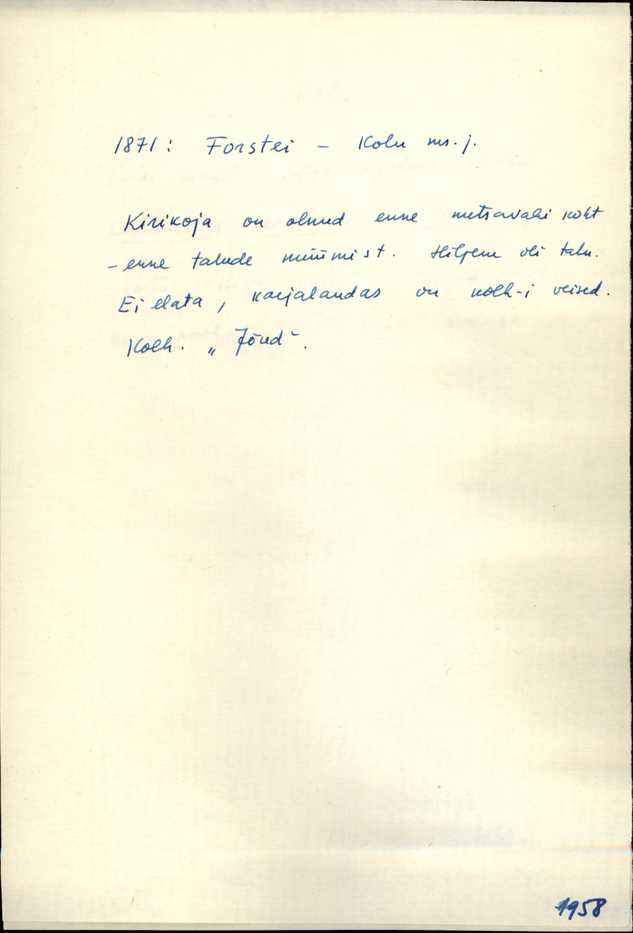 1871: Forstei – Kolu ms. j.
Kirikoja on olnud enne metsavahi koht
– enne talude müümist. Hiljem oli talu.
Ei elata, karjalaudas on kolh-i veised.
Kolh. „Jõud“.
1958